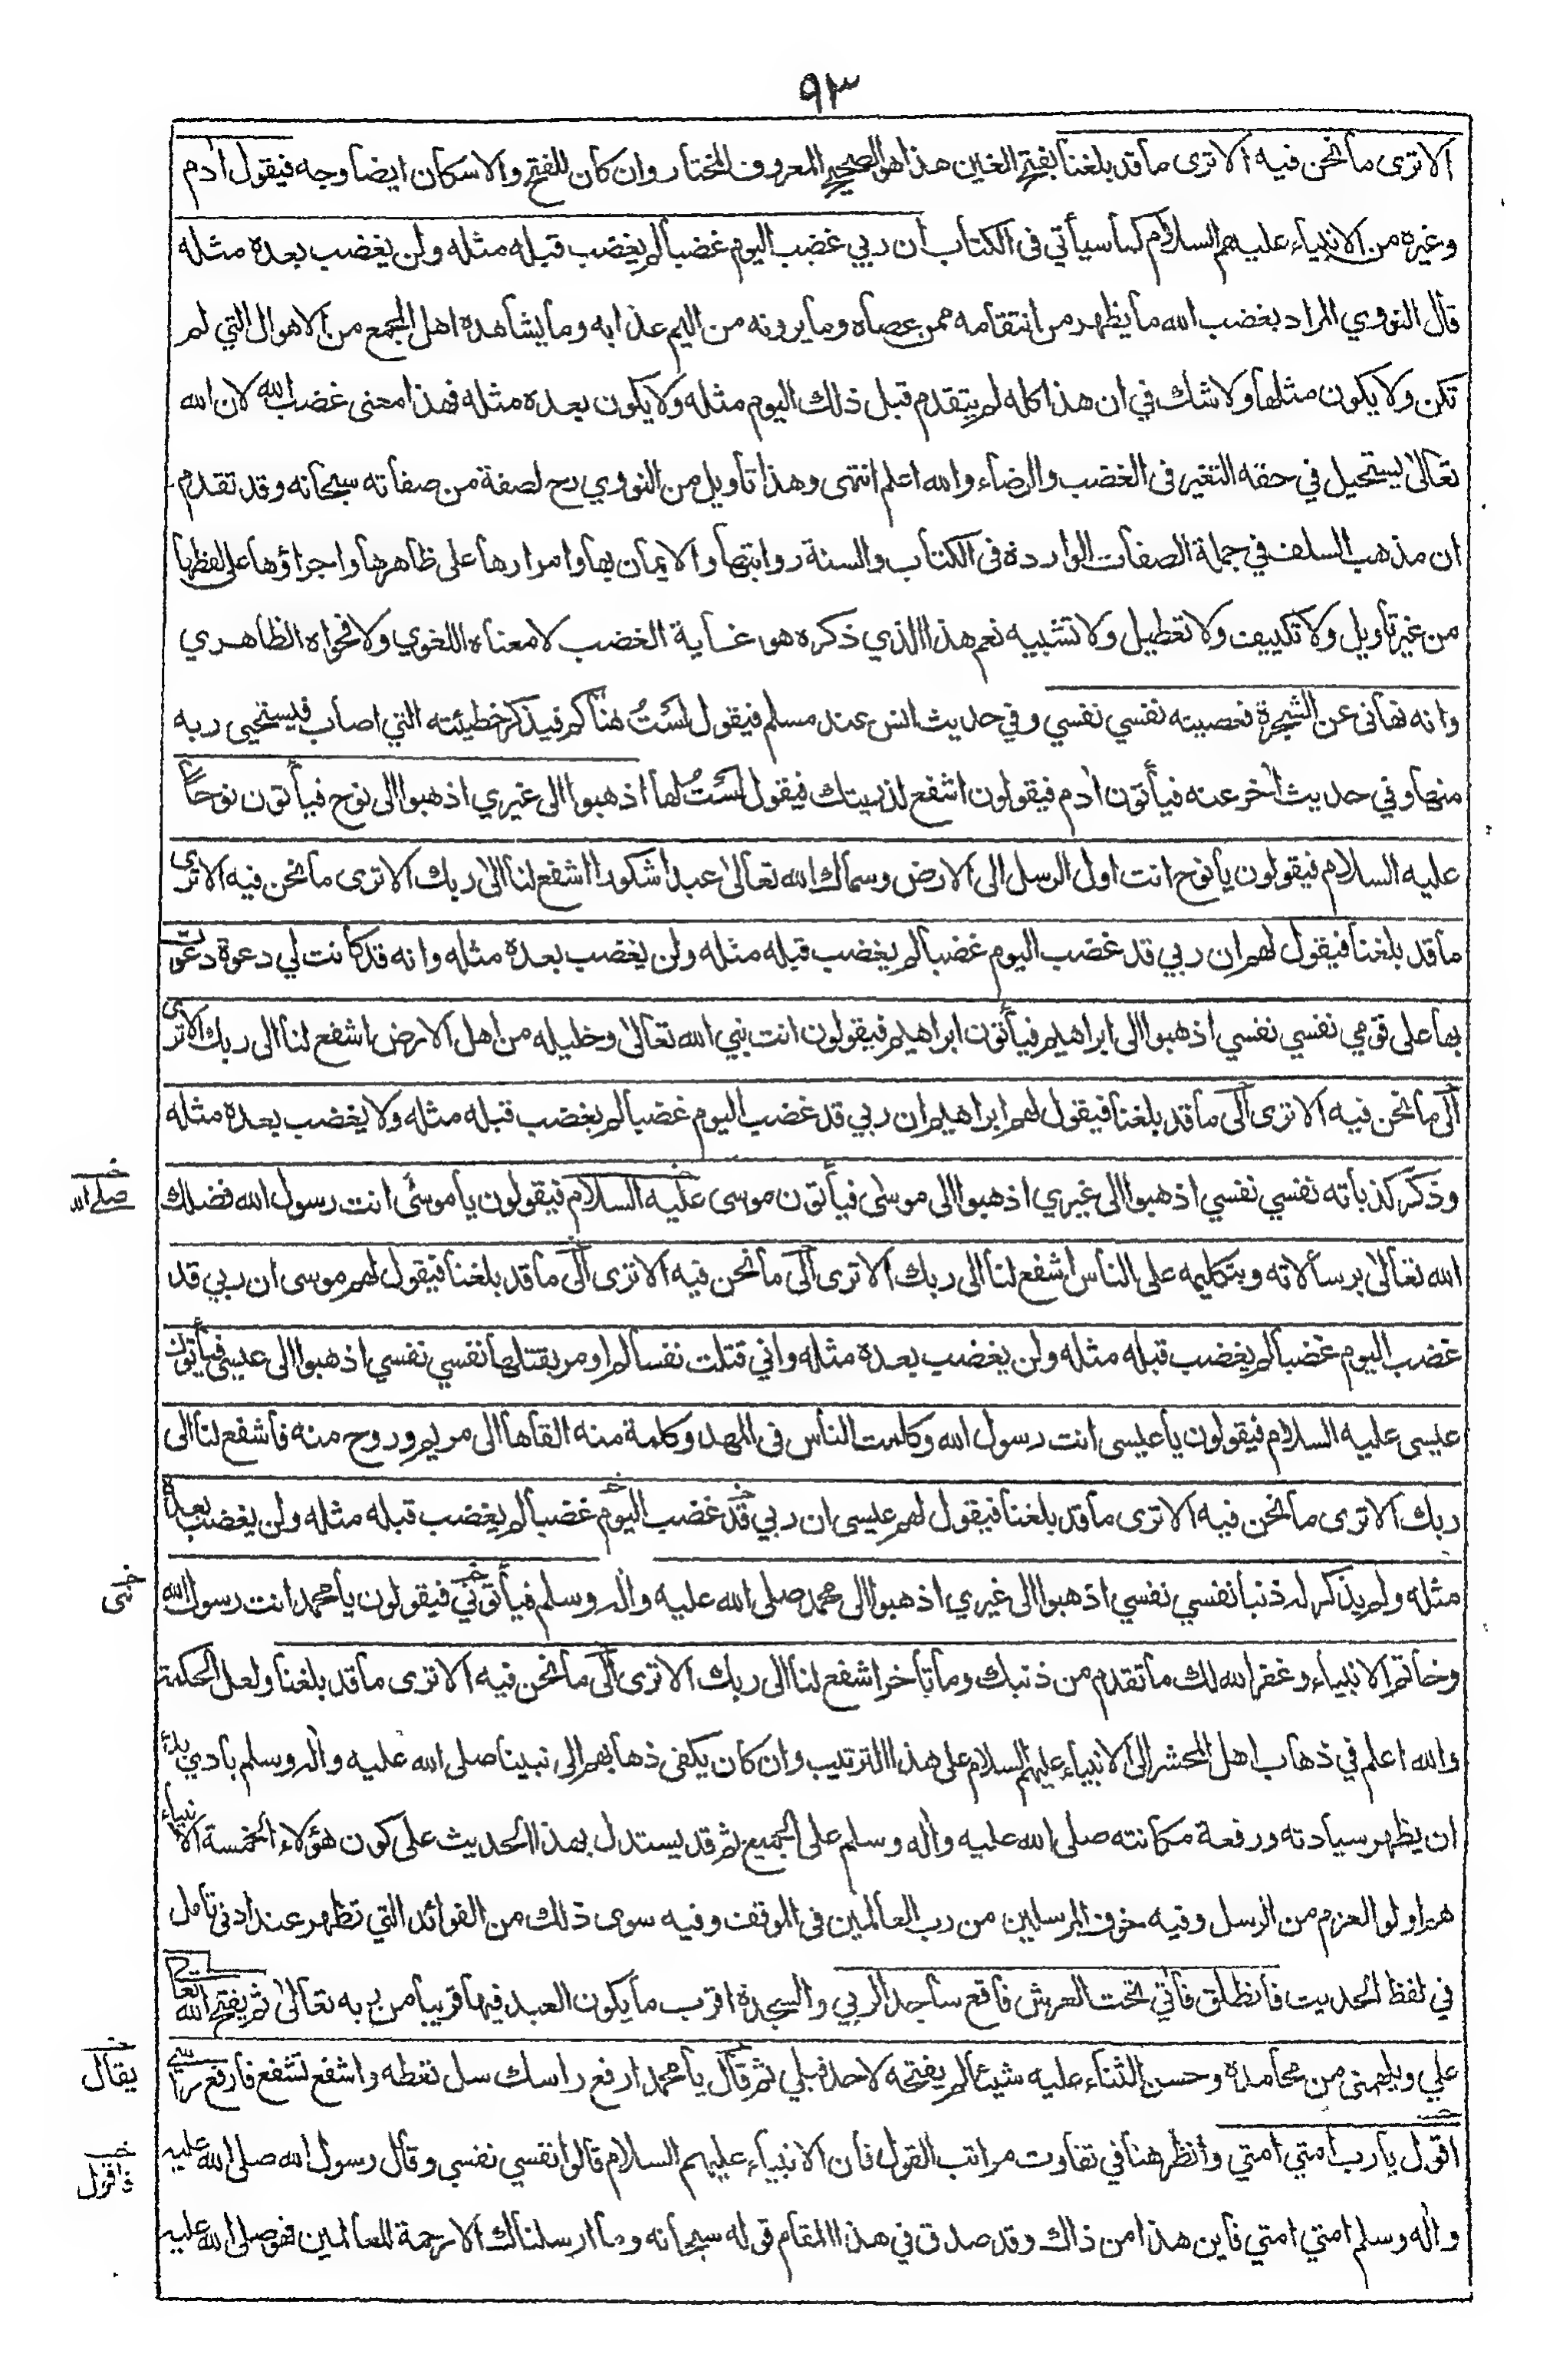 ٩٣
الا ترى ما نحن فيه الا ترى ما قد بلغنا بفتح الغين هذا هو الصحيح المعروف المختار وان كان للفتح والاسكان ايضا وجه فيقول اٰدم
وغيره من الانبياء عليهم السلام كما سيأتي فى الكتاب ان ربي غضب اليوم غضبا لم يغضب قبله مثله ولن يغضب بعده مثله
قال النووي المراد بغضب الله ما يظهر من انتقامه ممن عصاه وما يرونه من اليم عذابه وما يشاهده اهل المجمع من الاهوال التي لم
تكن ولا يكون مثلها ولا شك في ان هذا كله لم يتقدم قبل ذلك اليوم مثله ولا يكون بعده مثله فهذا معنى غضب الله لان الله
تعالىٰ يستحيل في حقه التغير فى الغضب والرضاء والله اعلم انتهى وهذا تأويل من النووي رح لصفة من صفاته سبحانه وقد تقدم
ان مذهب السلف في جملة الصفات الواردة فى الكتاب والسنة روايتها والايمان بها وامرارها على ظاهرها واجراؤها على لفظها
من غير تأويل ولا تكييف ولا تعطيل ولا تشبيه نعم هذا الذي ذكره هو غاية الغضب لا معناه اللغوي ولا فحواه الظاهري
وانه نهانى عن الشجرة فعصيته نفسي نفسي وفي حديث انس عند مسلم فيقول لَسْتُ هناكم فيذكر خطيئته التي اصاب فيستحيى ربه
منها وفي حديث اٰخر عنه فيأتون اٰدم فيقولون اشفع لذريتك فيقول لَسْتُ لها اذهبوا الى غيري اذهبوا الى نوح فيأتون نوحاً
عليه السلام فيقولون يا نوح انت اول الرسل الى الارض وسماك الله تعالىٰ عبدا شكورا اشفع لنا الىٰ ربك الا ترى ما نحن فيه الا ترى
ما قد بلغنا فيقول لهم ان ربي قد غضب اليوم غضبا لم يغضب قبله مثله ولن يغضب بعده مثله وانه قد كانت لي دعوة دعوت
بها على قومي نفسي نفسي اذهبوا الى ابراهيم فيأتون ابراهيم فيقولون انت نبي الله تعالىٰ وخليله من اهل الارض اشفع لنا الى ربك الا ترى
الى ما نحن فيه الا ترى الى ما قد بلغنا فيقول لهم ابراهيم ان ربي قد غضب اليوم غضبا لم يغضب قبله مثله ولا يغضب بعده مثله
وذكر كذباته نفسي نفسي اذهبوا الى غيري اذهبوا الى موسىٰ فيأتون موسى عليه السلام فيقولون يا موسىٰ انت رسول الله فضلك
خـ صلى الله
الله تعالىٰ برسالاته وبتكليمه على الناس اشفع لنا الى ربك الا ترى الى ما نحن فيه الا ترى الى ما قد بلغنا فيقول لهم موسى ان ربي قد
غضب اليوم غضبا لم يغضب قبله مثله ولن يغضب بعده مثله واني قتلت نفسا لم اومر بقتلها نفسي نفسي اذهبوا الى عيسى فيأتون
عيسى عليه السلام فيقولون يا عيسى انت رسول الله وكلمت الناس فى المهد وكلمة منه القاها الى مريم وروح منه فاشفع لنا الى
ربك الا ترى ما نحن فيه الا ترى ما قد بلغنا فيقول لهم عيسى ان ربي قد غضب اليوم غضبا لم يغضب قبله مثله ولن يغضب بعده
مثله ولم يذكر له ذنبا نفسي نفسي اذهبوا الى غيري اذهبوا الى محمد صلى الله عليه واٰله وسلم فيأتوني فيقولون يا محمد انت رسول الله
وخاتم الانبياء وغفر الله لك ما تقدم من ذنبك وما تأخر اشفع لنا الى ربك الا ترى الى ما نحن فيه الا ترى ما قد بلغنا ولعل الحكمة
والله اعلم في ذهاب اهل المحشر الى الانبياء عليهم السلام على هذا الترتيب وان كان يكفى ذهابهم الى نبينا صلى الله عليه واٰله وسلم بادي بدء
ان يظهر سيادته ورفعة مكانته صلى الله عليه واٰله وسلم على الجميع ثم قد يستدل بهذا الحديث على كون هؤلاء الخمسة الانبياء
هم اولو العزم من الرسل وفيه خوف المرسلين من رب العالمين فى الموقف وفيه سوى ذلك من الفوائد التي تظهر عند ادنى تامل
في لفظ الحديث فانطلق فآتي تحت العرش فاقع ساجدا لربي والسجدة اقرب ما يكون العبد فيها قريبا من ربه تعالىٰ ثم يفتح الله تعالى
علي ويلهمني من محامده وحسن الثناء عليه شيئا لم يفتحه لاحد قبلي ثم قال يا محمد ارفع راسك سل تعطه واشفع تشفع فارفع راسي
خـ يقال
اقول يا رب امتي امتي وانظر هنا في تفاوت مراتب القول فان الانبياء عليهم السلام قالوا نفسي نفسي وقال رسول الله صلى الله عليه
خـ فاقول
واٰله وسلم امتي امتي فاين هذا من ذاك وقد صدق في هذا المقام قوله سبحانه وما ارسلناك الا رحمة للعالمين فهو صلى الله عليه